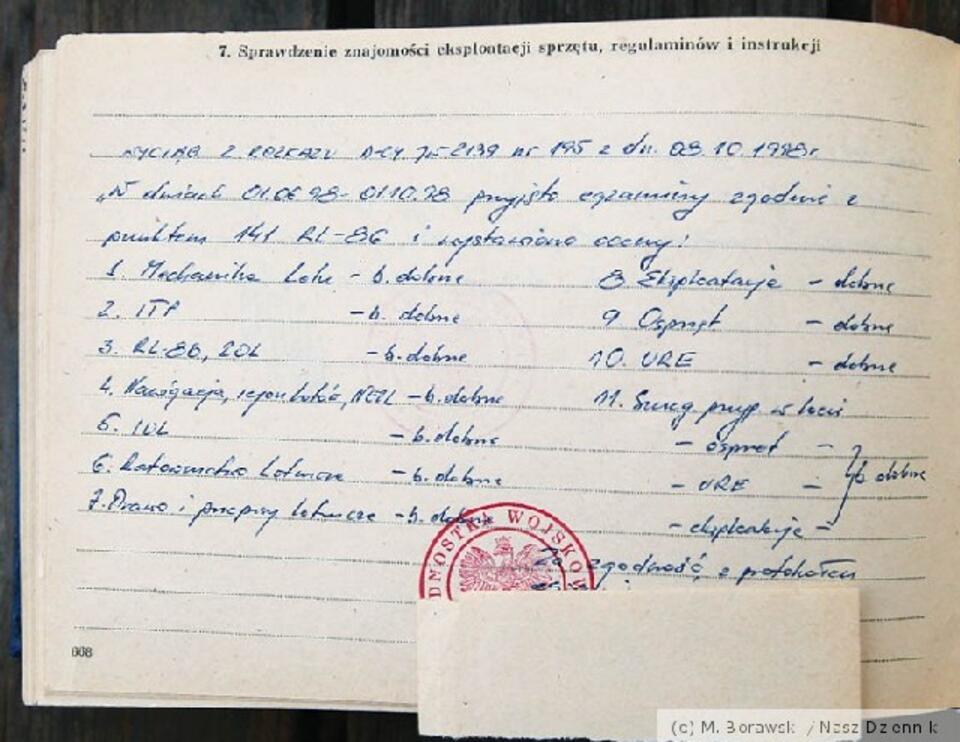 7. Sprawdzenie znajomości eksploatacji sprzętu, regulaminów i instrukcji
WYCIĄG Z ROZKAZU D-CY JW-2139 nr 195 z dn. 08.10.1998r.
„W dniach 01.06.98-01.10.98 przyjęto egzaminy zgodnie z
punktem 141 RL-86 i wystawiono oceny:
1. Mechanika Lotu - b. dobne
2. ITP - b. dobne
3. RL-86, IOL - b. dobne
4. Nawigacja, - b. dobne
5. IUL - b. dobne
6. Ratownictwo Lotnicze - b. dobne
7. Prawo i przepisy lotnicze - b. dobne
8. Eksploatacja - dobne
9. Osprzęt - dobne
10. URE - dobne
11. w locie
- osprzęt -
- URE - b. dobne
- eksploatacja -
Za zgodność z protokołem
DNOSTKA WOJSKOW
668
(c) M. Borawski / Nasz Dziennik